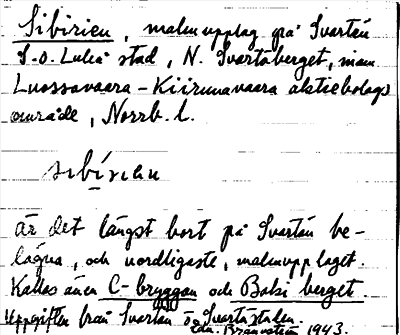 Sibirien, malmupplag på Svartön
S.O. Luleå stad, N. Svartöberget, inom
Luossavaara-Kiirunavaara aktiebolags
område, Norrb. l.
sıbı́rıen
är det längst bort på Svartön be-
lägna, och nordligaste, malmupplaget.
Kallas även C-bryggan och Balsi berget.
Uppgiften från Svartön o. Svartöstaden.
Edv. Brännström 1943.